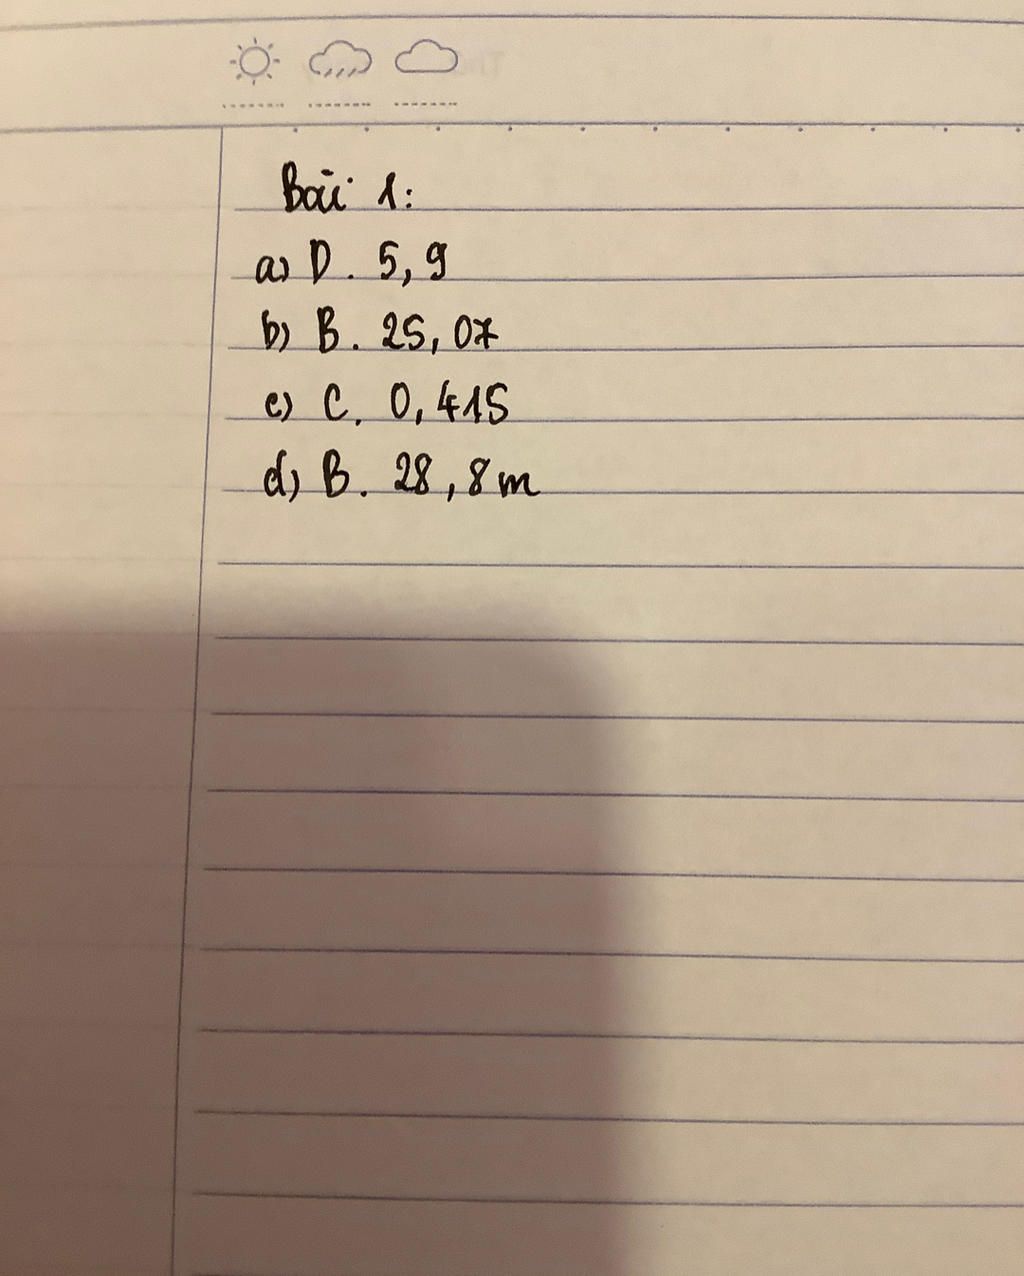 Bài 1:
a) D. 5,9
b) B. 25,07
c) C. 0,415
d) B. 28,8m